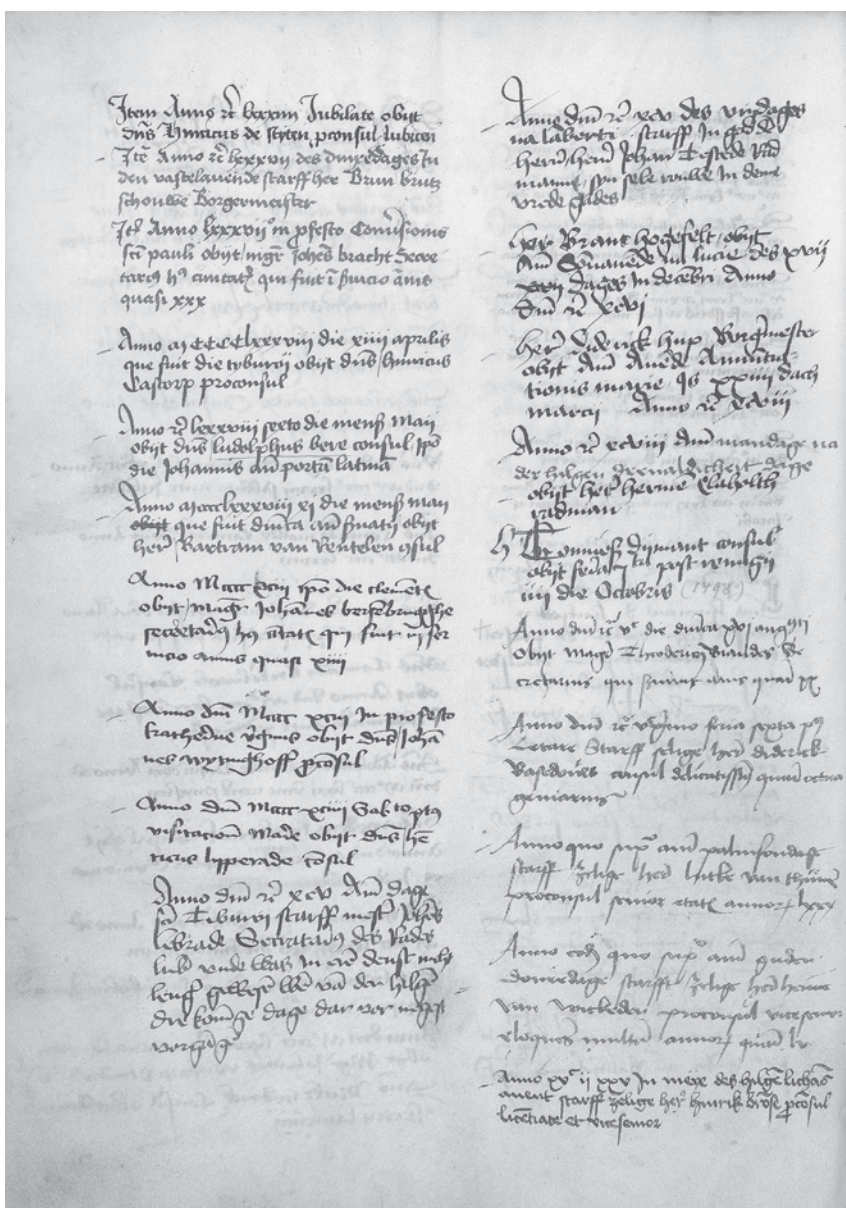 Item Anno rc lxxxiiii Jubilate obijt
dns Hinricus de Styten pconsul lubicen
Ite Anno rc lxxxvii des dinxedages In
den vastelauende starff her Brun bruts
schouwe Borgermeister
Ite Anno lxxxvii in pfesto Conuersionis
sci pauli obijt mgr Johes bracht Secre
tarius ciuitat qui fuit i suicio anis
quasi xxx
Anno MCCCClxxxvii die xiiii aprilis
que fuit die tyburcii obijt dns hinricus
Castorp proconsul
Anno rc lxxxviii sexto die mens Maij
obijt dns ludolphus bere consul ipo
die Johannis an porta latina
Anno Mcccclxxxviii xi die mens maij
que fuit dinca an suatij obijt
her Bartram van Rentelen consul
Anno Mcccc xciii ipo die clemetis
obijt Magr Johannes bersenbrugghe
secretarius qui fuit in ser
uicio annis quasi xiiii
Anno dm Mcccc xciii In profesto
katherine vginis obijt dns Joha
nes wytinghoff pconsul
Anno dm Mcccc xciiii Sabto post
visitacion Marie obijt dns he
ricus lipperade consul
Anno dm rc xcv Am dage
sci Tiburcij starff mest Johes
librade Secretarius des Rades
lubic vnde was In ere denst nicht
lenger gewesen wen van der hilgen
dre koninge dage dar vor negest
vorgang
Anno dm rc xcv des vrydages
na laborti starff In god
hern her Johan Testede Rad
manne, syn sele rouwe In deme
vrede gades
her Brant hogefelt obijt
Am Sonauende lucie des xvii
dages In decebri Anno
dm rc xcvi
her Diderick hup Borgmester
obijt Am Auede Annuncia
tionis marie is xxiiii dach
marcij Anno rc xcviii
Anno rc xcviii Am mandage na
der hilgen dreualdicheit dage
obijt her herme Claholth
radman
h Tonnies dijmant consul
obijt feria post remigij
iiii die Octobris (1498)
Anno dm rc vc die dinca xvi augusti
obijt magr Theodericus Brandes Se
cretarius qui seruiuit anis quasi xx
Anno dm rc vc primo feria sexta post
Letare Starff selige her Diderick
Basedouwe consul quasi octua
genarius
Anno quo supra am palmsondage
starff zelige her lutke van thunen
proconsul senior etatis annor lxxx
Anno eode quo supra am guden
donredage starfft zelige her herme
van wickeden proconsul vicesenior
eloquens multum annor quasi lv
Anno xvc ii xxv In meye des hilgen lichas
auent starff zelige her hinrik brose pconsul
licentiate et vicesenior